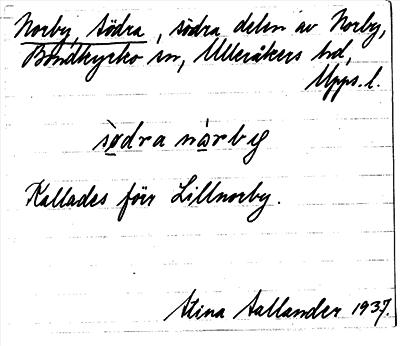 Norby, södra, södra delen av Norby,
Bondkyrko sn, Ulleråkers hd,
Upps. l.
sòdra nàrby
Kallades förr Lillnorby.
Stina Sallander 1937.